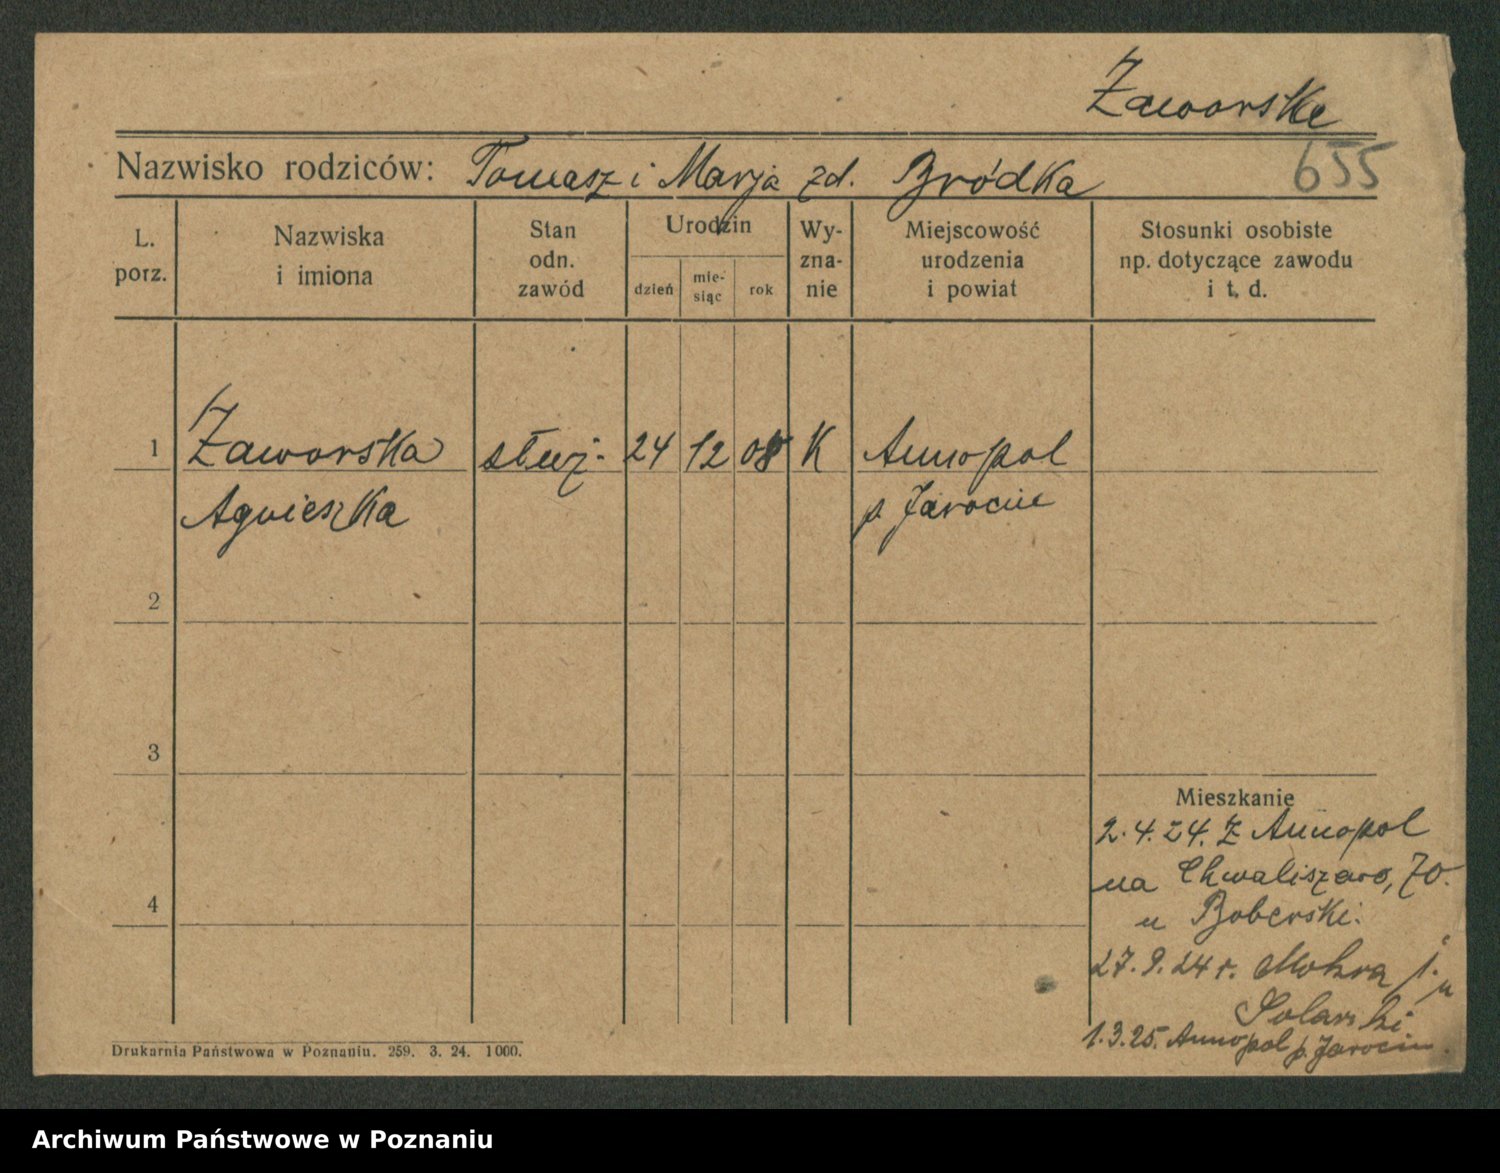 Zaworske
655
Nazwisko rodziców: Tomasz i Marja zd. Bródka
L. porz.
Nazwiska i imiona
Stan odn. zawód
Urodzin
dzień
mie-siąc
rok
Wy-zna-nie
Miejscowość urodzenia i powiat
Stosunki osobiste np. dotyczące zawodu i t. d.
1 Zaworska służ. 24 12 08 K Annopol
Agnieszka p. Jarocin
2
3
4
Mieszkanie
2.4.24. Z Annopol
na Chwaliszewo, 70.
u Boberski.
27.9.24 r. Mokra 1. u
Solarski
1.3.25. Annopol p. Jarocin.
Drukarnia Państwowa w Poznaniu. 259. 3. 24. 1000.
Archiwum Państwowe w Poznaniu